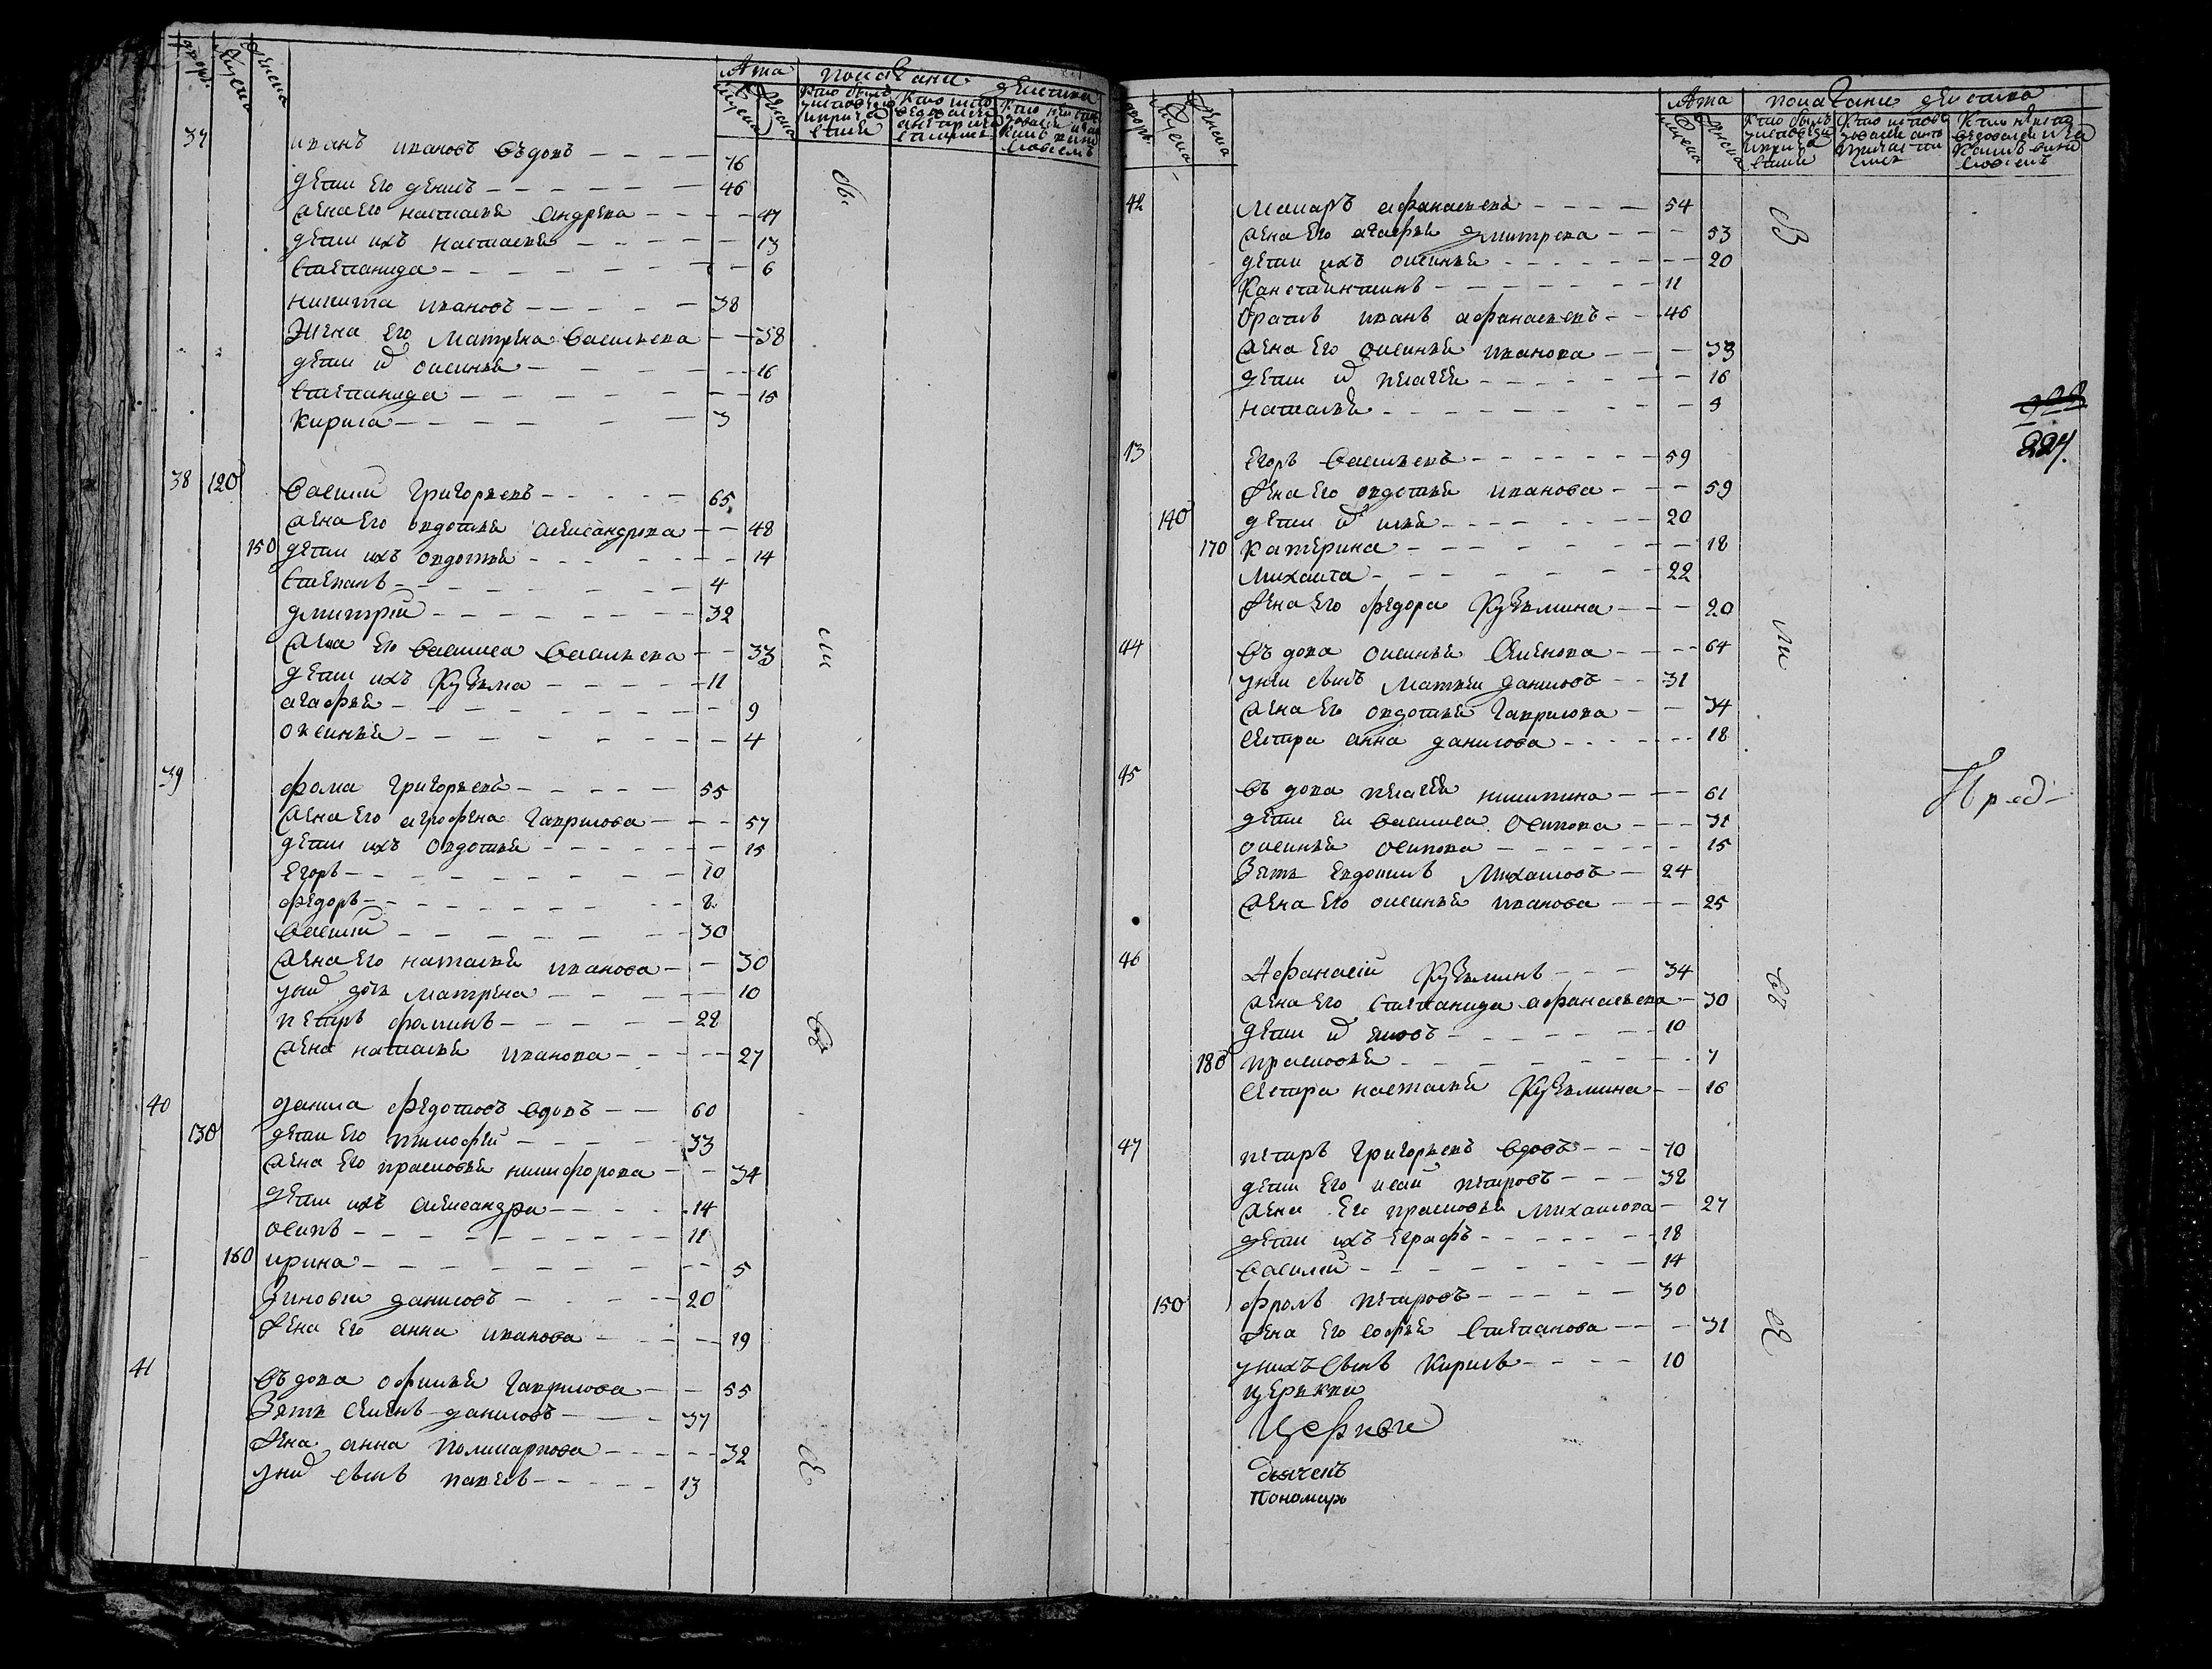 дворъ Мужеска Женска
Лета Показани действа
Мужеска Женска Кто былъ у исповеди и причастия Кто исповедовался а не причастился Кто не исповедовался и за какимъ виннословиемъ
37 иванъ ивановъ въдовъ - - - - 76
дети его денисъ - - - - - 46
жена его настасья андреева - - - - 47
дети ихъ настасья - - - - - 13
степанида - - - - - 6
никита ивановъ - - - - - 38
Жена его матрена васильева - - 38
дети ихъ оксинья - - - - 16
степанида - - - - - 15
кирила - - - - - 3
38 120 василий григорьевъ - - - - - 65
жена его овдотья александрова - - 48
150 дети ихъ овдотья - - - - 14
степанъ - - - - - 4
дмитрий - - - - - 32
жена его василиса васильева - - 33
дети ихъ кузьма - - - - 11
агафья - - - - - 9
оксинья - - - - - 4
39 фома григорьевъ - - - - - 55
жена его агрофена гаврилова - - - 57
дети ихъ овдотья - - - - - 15
егоръ - - - - - 10
федоръ - - - - - 8
василий - - - - - 30
жена его наталья иванова - - 30
у них дочь матрена - - - - 10
петръ фоминъ - - - - - 28
жена наталья иванова - - - - 27
40 данила федотовъ вдовъ - - - 60
130 дети его тимофей - - - - 33
жена его прасковья никифорова - - 34
дети ихъ александра - - - - 14
осипъ - - - - - 11
160 ирина - - - - - 5
зиновей даниловъ - - - - 20
жена его анна иванова - - - - 19
41 въдова офимья гаврилова - - 55
зять семенъ даниловъ - - - - 37
жена анна поликарпова - - - - 32
у них сынъ павелъ - - - - 13
дворъ Мужеска Женска
Лета Показани действа
Мужеска Женска Кто былъ у исповеди и причастия Кто исповедовался а не причастился Кто не исповедовался и за какимъ виннословиемъ
42 макаръ афанасьевъ - - - - 54
жена его агафья дмитрева - - - 53
дети ихъ оксинья - - - - - 20
константинъ - - - - - 11
братъ иванъ афанасьевъ - - 46
жена его оксинья иванова - - - 33
дети их пелагея - - - - - 16
наталья - - - - - 9
227
43 егоръ васильевъ - - - - - 59
жена его овдотья иванова - - - 59
140 дети их илья - - - - - 20
170 катерина - - - - - 18
михаила - - - - - 22
жена его федора кузьмина - - - 20
44 въдова оксинья семенова - - - - 64
у нея сынъ матвей даниловъ - - 31
жена его овдотья гаврилова - - 34
сестра анна данилова - - - - 18
45 въдова пелагея никитина - - - 61
дети ея василиса осипова - - - 31
оксинья осипова - - - - - 15
зять евдокимъ михайловъ - 24
жена его оксинья иванова - - - 25
Пред-
46 Афанасий кузьминъ - - - 34
жена его степанида афанасьева - 30
дети их яковъ - - - - - 10
180 прасковья - - - - - 7
сестра настасья кузьмина - - 16
47 петръ григорьевъ вдовъ - - - 70
дети его исай петровъ - - - 38
жена его прасковья михайлова - 27
дети ихъ еграфъ - - - - - 18
василий - - - - - 14
150 фролъ петровъ - - - - - 30
жена его софья степанова - - - 31
у нихъ сынъ кирилъ - - - - 10
церькви
Церкви
дьячекъ
Пономарь